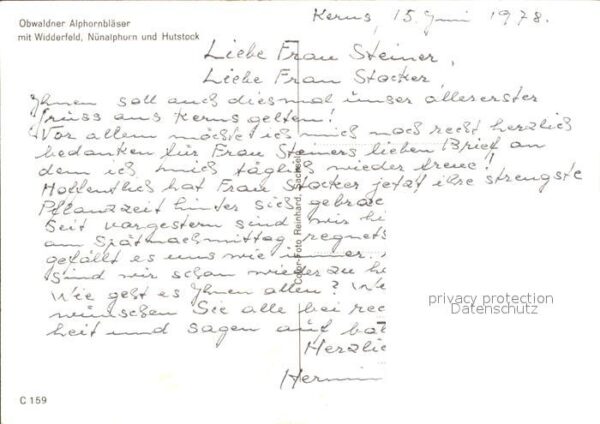 Obwaldner Alphornbläser
mit Widderfeld, Nünalphurn und Hutstock
Kerns, 15. Juni 1978.
Liebe Frau Steiner,
Liebe Frau Stocker,
Ihnen soll auch diesmal unser allererster
Gruss aus Kerns gelten!
Vor allem möchte ich mich noch recht herzlich
bedanken für Frau Steiners lieben Brief an
dem ich mich täglich wieder freue!
Hoffentlich hat Frau Stocker jetzt ihre strengste
Pflanzzeit hinter sich gebrac
Seit vorgestern sind wir hi
am Spätnachmittag regnets
gefällt es uns wie immer.
sind wir schon wieder zu he
Wie geht es Ihnen allen? Wi
wünschen Sie alle bei rec
heit und sagen auf bal
Herzlic
Hermin
Color-Foto Reinhard, Sachseln
privacy protection
Datenschutz
C 159